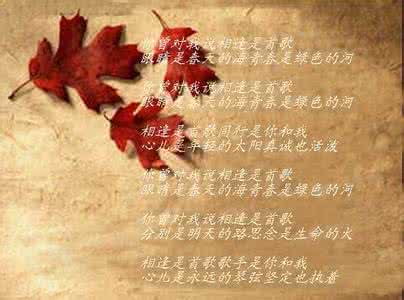 你曾对我说相逢是首歌
眼睛是春天的海青春是绿色的河
你曾对我说相逢是首歌
眼睛是春天的海青春是绿色的河
相逢是首歌同行是你和我
心儿是年轻的太阳真诚也活泼
你曾对我说相逢是首歌
眼睛是春天的海青春是绿色的河
你曾对我说相逢是首歌
分别是明天的路思念是生命的火
相逢是首歌歌手是你和我
心儿是永远的琴弦坚定也执着